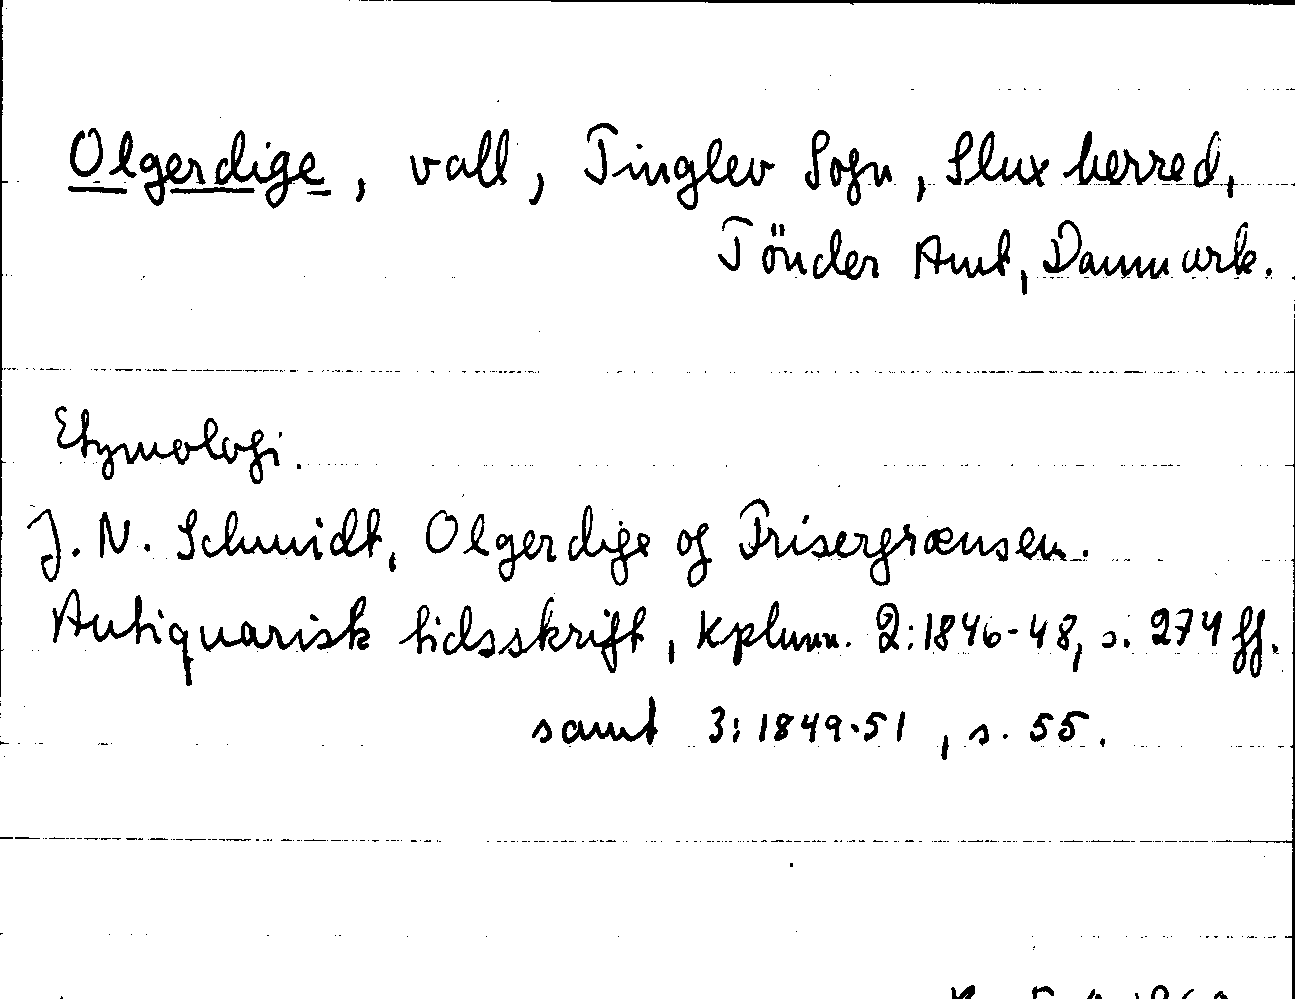 Olgerdige, vall, Tinglev Sogn, Slux herred,
Tönder Amt, Danmark.
Etymologi.
J. N. Schmidt, Olgerdige og Frisergrænsen.
Antiquarisk tidsskrift, Kphmn. 2:1846-48, s. 274 ff.
samt 3:1849-51, s. 55.